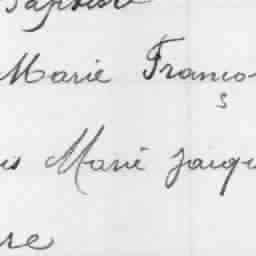 Baptiste
Marie Franço
s
is Marie Jacqu
re